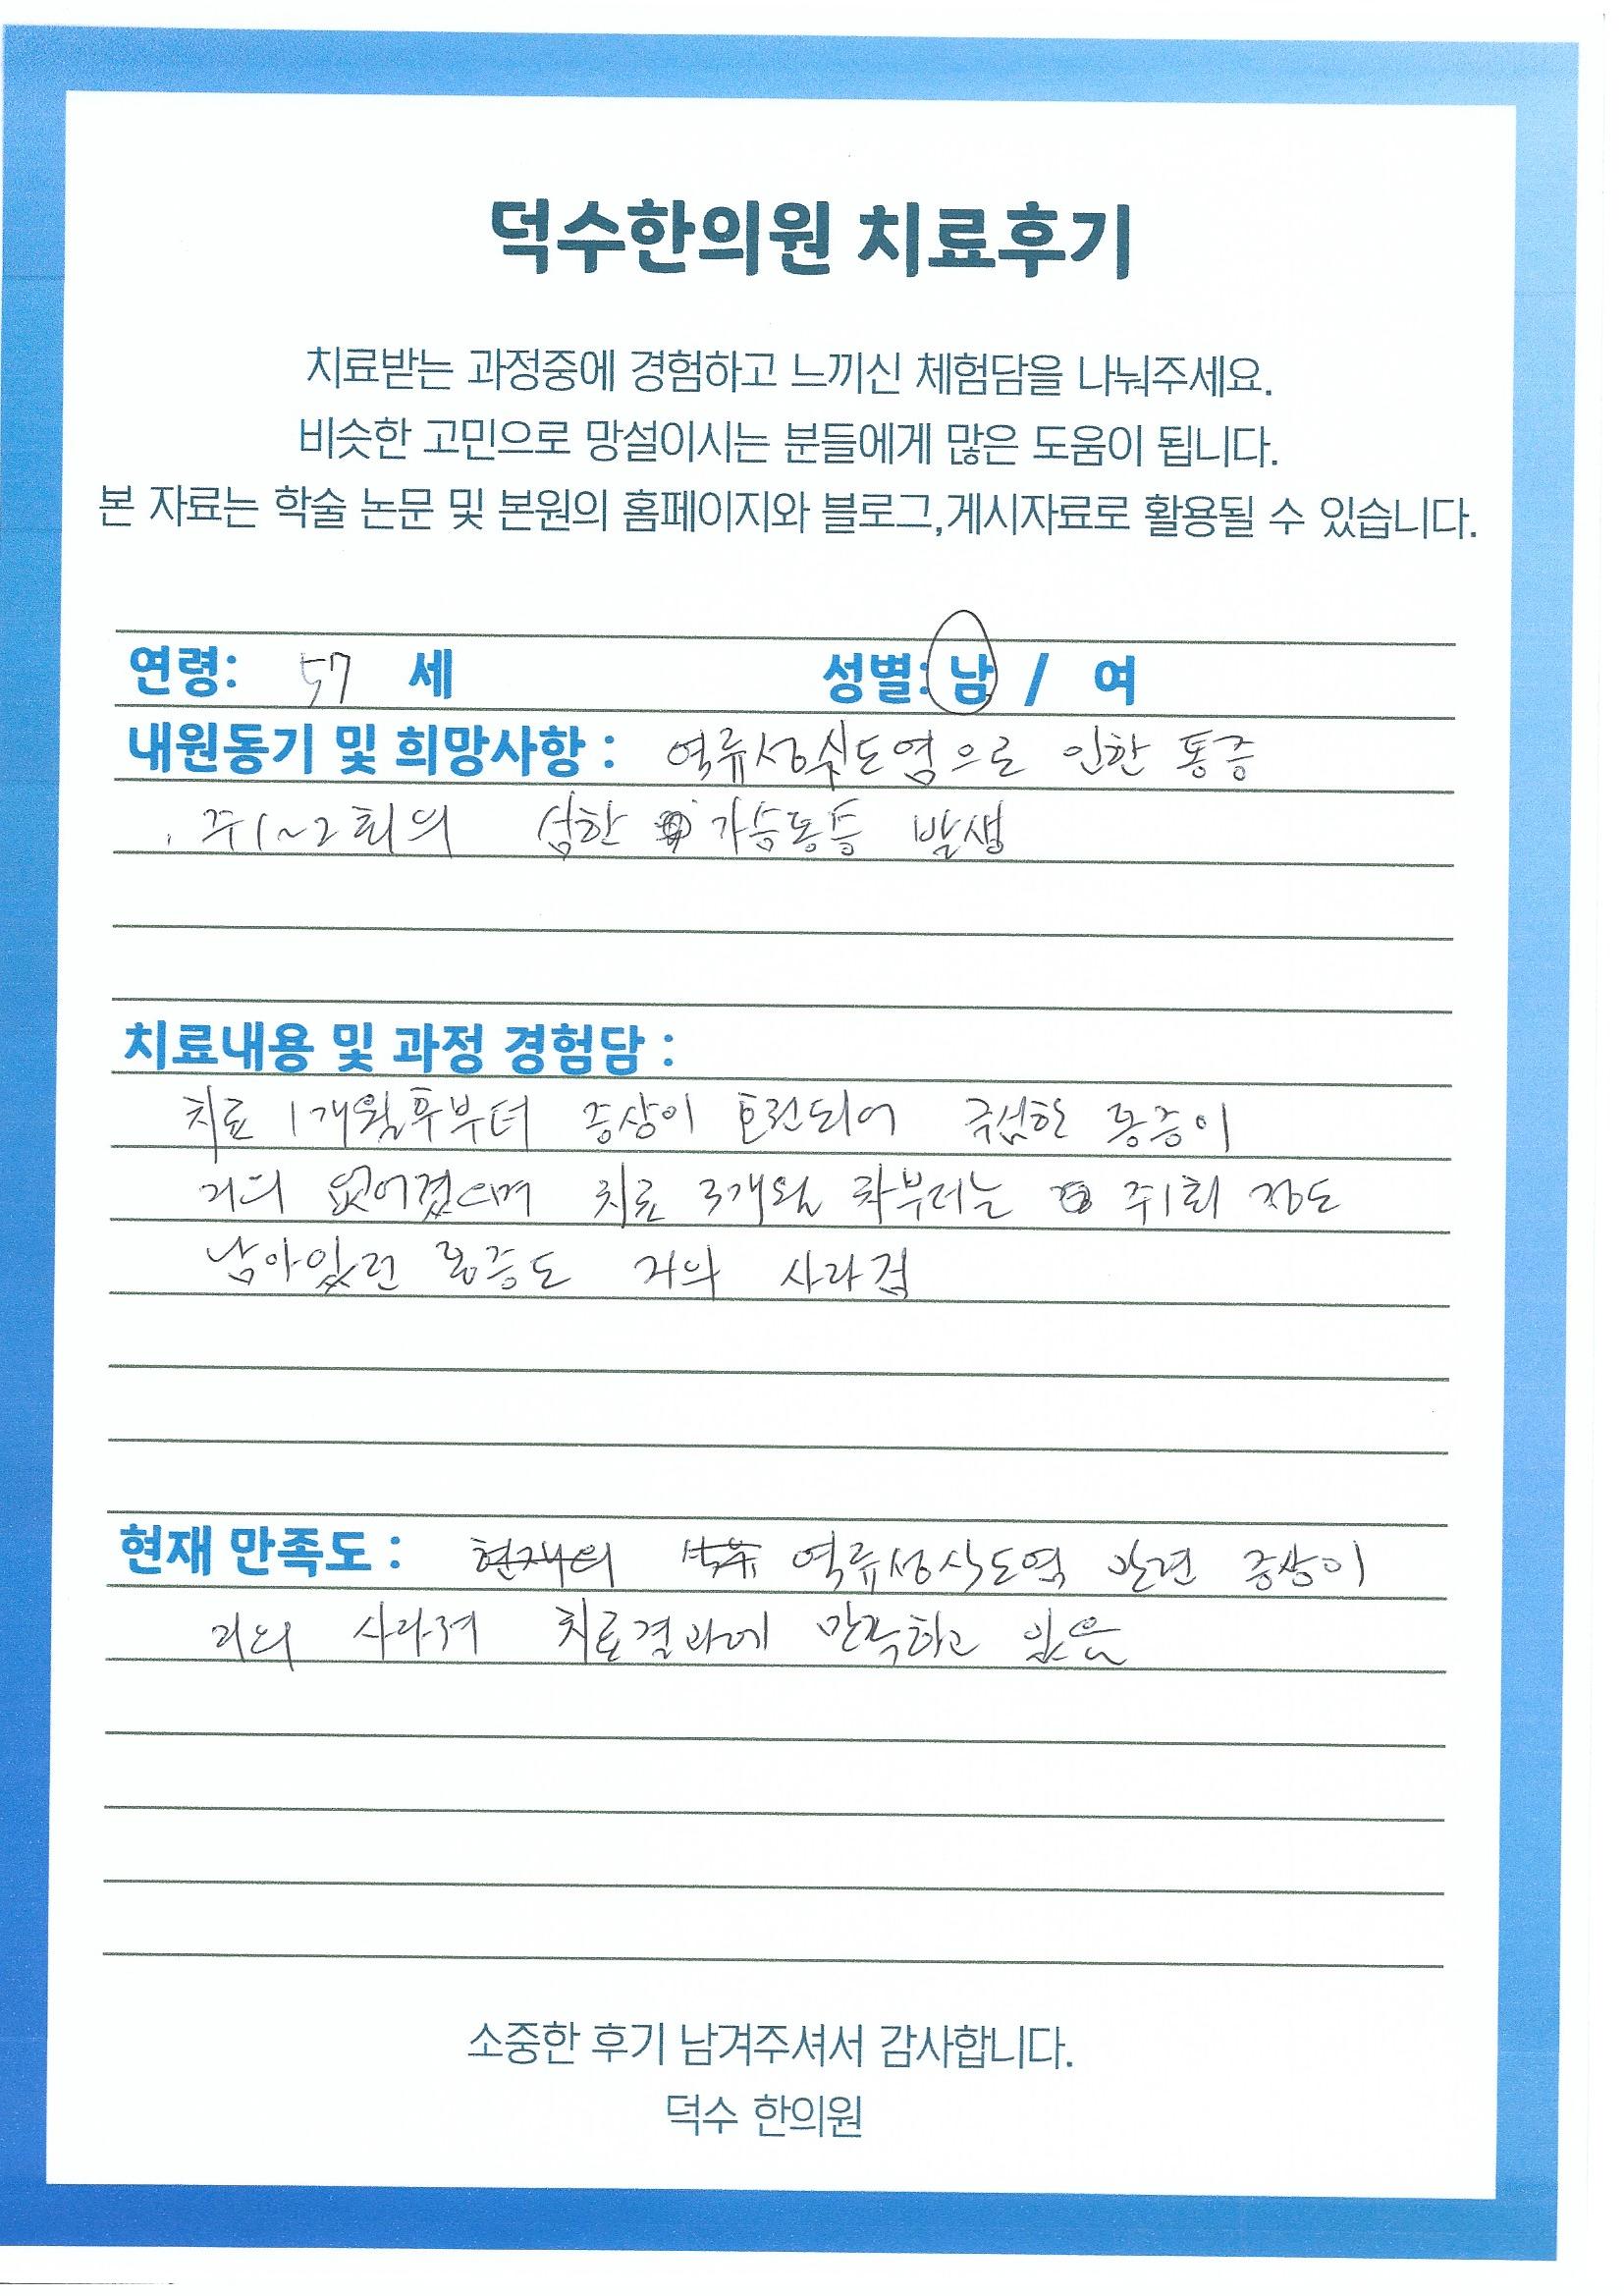 덕수한의원 치료후기
치료받는 과정중에 경험하고 느끼신 체험담을 나눠주세요.
비슷한 고민으로 망설이시는 분들에게 많은 도움이 됩니다.
본 자료는 학술 논문 및 본원의 홈페이지와 블로그,게시자료로 활용될 수 있습니다.
연령: 57 세 성별: 남 / 여
내원동기 및 희망사항 : 역류성식도염으로 인한 통증
. 주1~2회의 심한 가슴통증 발생
치료내용 및 과정 경험담 :
치료 1개월후부터 증상이 호전되어 극심한 통증이
거의 없어졌으며 치료 3개월 차부터는 주1회 정도
남아있던 통증도 거의 사라짐
현재 만족도 : 현재의 역류성식도염 관련 증상이
거의 사라져 치료결과에 만족하고 있음
소중한 후기 남겨주셔서 감사합니다.
덕수 한의원